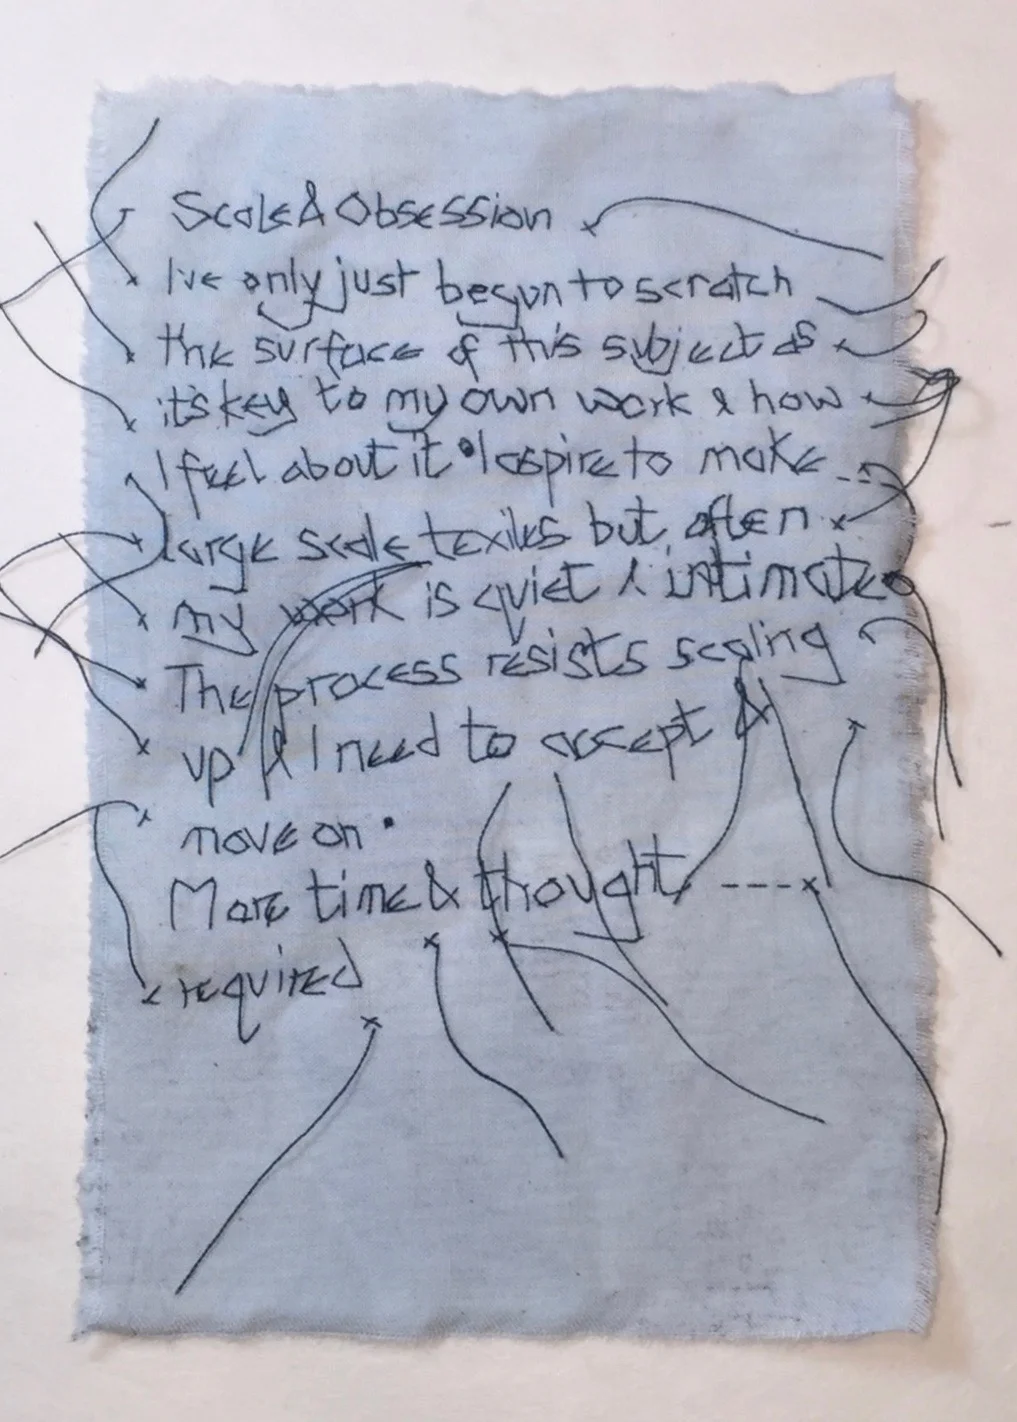 Scale & Obsession
I've only just begun to scratch
the surface of this subject as
it's key to my own work & how
I feel about it • I aspire to make
large scale texiles but often
my work is quiet & intimate
The process resists scaling
up & I need to accept &
move on •
More time & thought ----
required